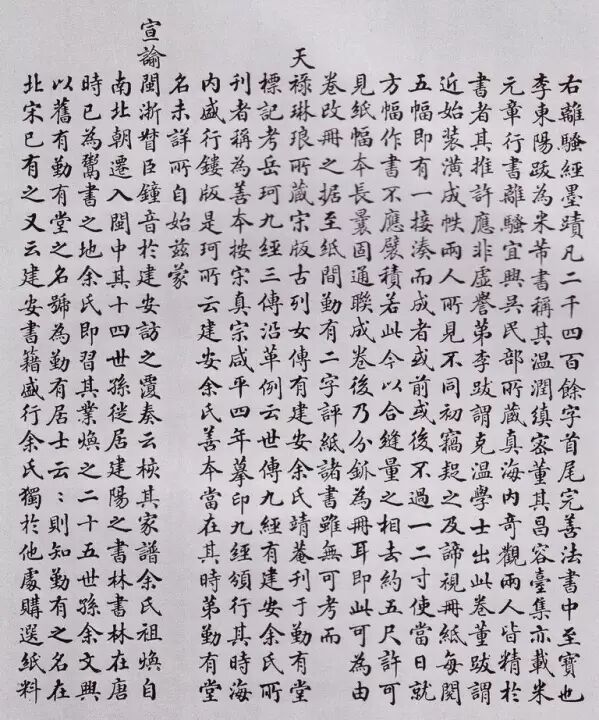 右離騷經墨蹟凡二千四百餘字首尾完善法書中至寶也
李東陽跋為米芾書稱其温潤鎮密董其昌容臺集亦載米
元章行書離騷宜興吳民部所藏真海內奇觀兩人皆精於
書者其推許應非虛譽第李跋謂克温學士出此卷董跋謂
近始装潢成帙兩人所見不同初竊疑之及諦視冊紙每閱
五幅即有一接湊而成者或前或後不過一二寸使當日就
方幅作書不應襞積若此今以合縫量之相去約五尺許可
見紙幅本長曩固通聯成卷後乃分鈲為冊耳即此可為由
卷改冊之据至紙間勤有二字評紙諸書雖無可考而
天祿琳琅所藏宋版古列女傳有建安余氏靖菴刊于勤有堂
標記考岳珂九經三傳沿革例云世傳九經有建安余氏所
刊者稱為善本按宋真宗咸平四年摹印九經頒行其時海
内盛行鏤版是珂所云建安余氏善本當在其時第勤有堂
名未詳所自始兹蒙
宣諭閩浙督臣鐘音於建安訪之覆奏云核其家譜余氏祖煥自
南北朝遷入閩中其十四世孫徙居建陽之書林書林在唐
時已為鬻書之地余氏即習其業煥之二十五世孫余文興
以舊有勤有堂之名號為勤有居士云：則知勤有之名在
北宋已有之又云建安書籍盛行余氏獨於他處購選紙料